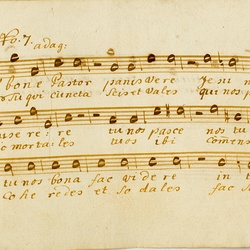 No. 7. adag:
bone Pastor panis vere Jesu
Tu qui cuncta scis et vales qui nos p
ere: re tu nos pasce nos tu
mortales tuos ibi comens
tu nos bona fac videre in t
Cohe redes et sodales fac s